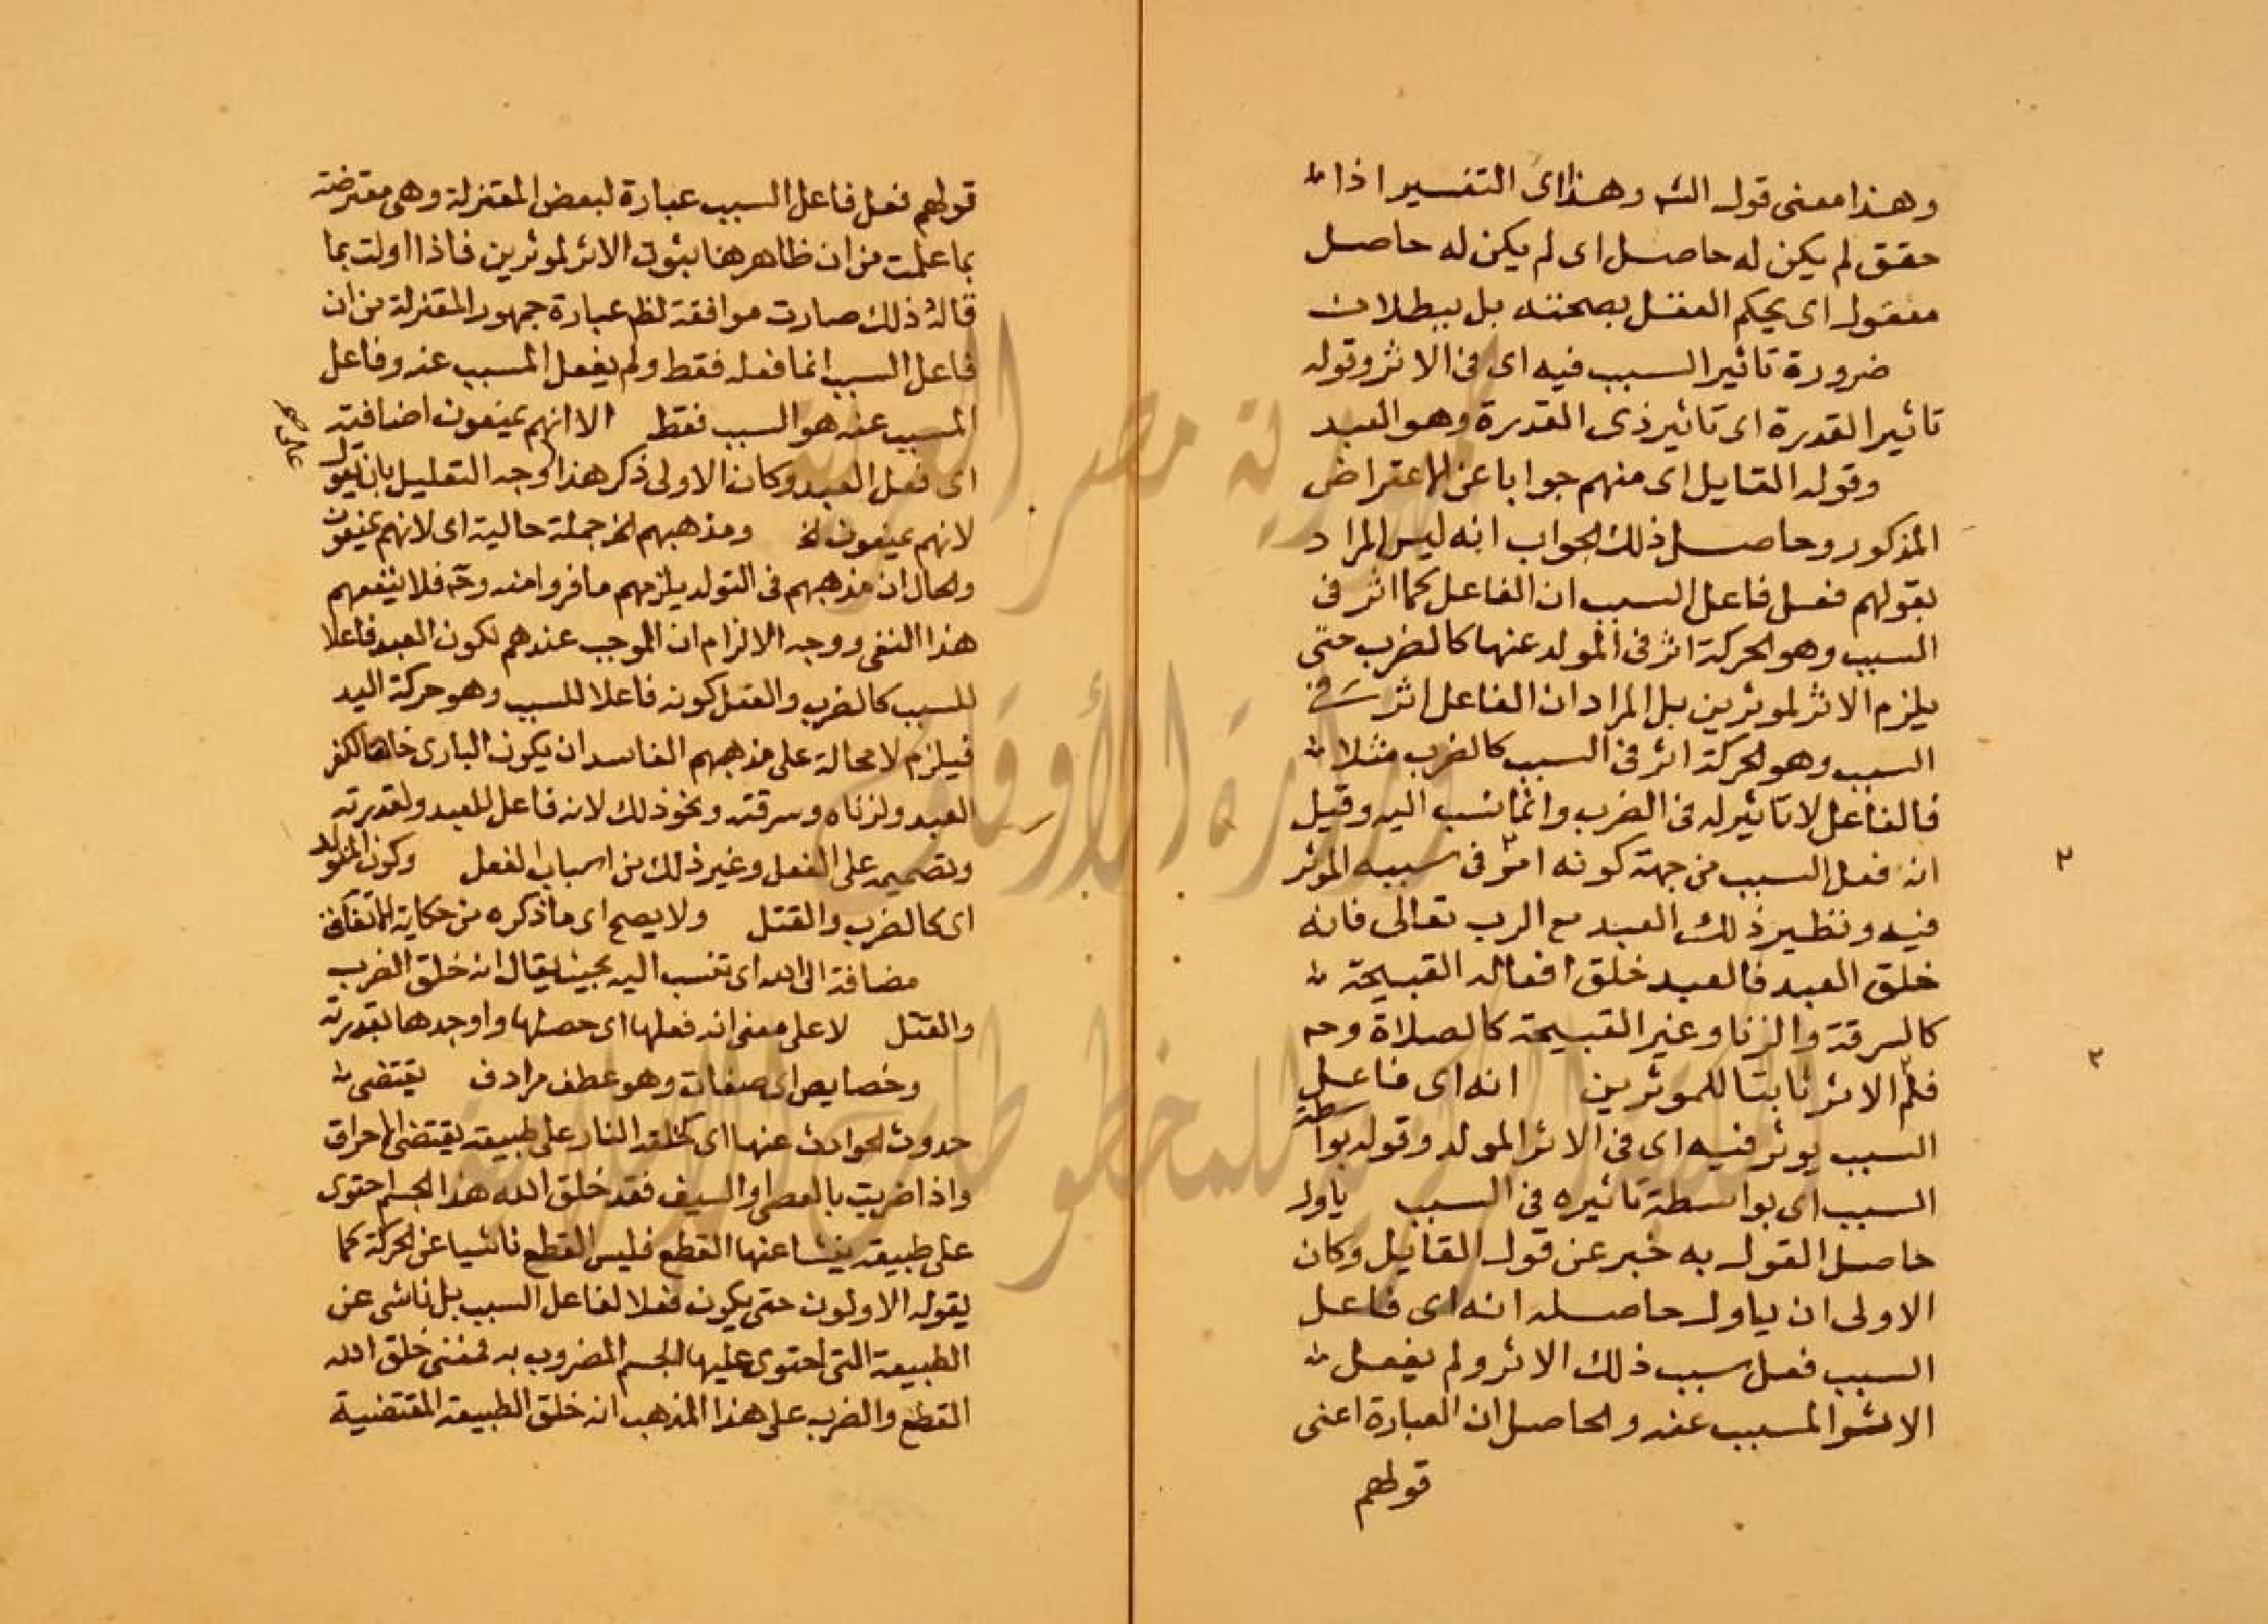 وهذا معنى قوله الش وهذا اى التفسير اذا
حقق لم يكن له حاصل اى لم يكن له حاصل
معقول اى يحكم العقل بصحته بل ببطلانه
ضرورة تاثير السبب فيه اى فى الاثر وقوله
تاثير القدرة اى تاثير ذى القدرة وهو العبد
وقوله القايل اى منهم جوابا عن الاعتراض
المذكور وحاصل ذلك الجواب انه ليس المراد
بقولهم فعل فاعل السبب ان الفاعل كما اثر فى
السبب وهو الحركة اثر فى المولد عنها كالضرب حتى
يلزم الاثر لموثرين بل المراد ان الفاعل اثر فى
السبب وهو الحركة اثر فى السبب كالضرب مثلا
فالفاعل لا تاثير له فى الضرب وانما نسب اليه وقيل
انه فعل السبب من جهة كونه اثر فى سببه الموثر
فيه ونظير ذلك العبد مع الرب تعالى فانه
خلق العبد فالعبد خلق افعاله القبيحة
كالسرقة والزنا وغير القبيحة كالصلاة وح
فلم الاثر ثابتا للموثرين انه اى فاعل
السبب يوثر فيه اى فى الاثر المولد وقوله بواسطة
السبب اى بواسطة تاثيره فى السبب ياول
حاصل القول به خبر عن قول القايل وكان
الاولى ان ياول حاصله انه اى فاعل
السبب فعل سبب ذلك الاثر ولم يفعل
الاثر المسبب عنه والحاصل ان العبارة اعنى
قولهم
قولهم فعل فاعل السبب عبارة لبعض المعتزلة وهى معترضة
بما علمت من ان ظاهرها ثبوت الاثر لموثرين فاذا اولت بما
قاله ذلك صارت موافقة لظ عبارة جمهور المعتزلة من ان
فاعل السبب انما فعله فقط ولم يفعل المسبب عنه وفاعل
المسبب عنه هو السبب فقط الا انهم يمنعون اضافته
اى فعل العبد وكان الاولى ذكر هذا لوجه التعليل بان يقول
لانهم يمنعون الخ ومذهبهم الخ جملة حالية اى لانهم يمنعون
والحال ان مذهبهم فى التولد يلزمهم ما فروا منه وح فلا ينفعهم
هذا النفى ووجه الالزام ان الموجب عندهم لكون العبد فاعلا
للمسبب كالضرب والقتل كونه فاعلا للسبب وهو حركة اليد
فيلزم لا محالة على مذهبهم الفاسد ان يكون البارى خالقا لكفر
العبد ولزناه وسرقته ونحو ذلك لانه فاعل للعبد ولقدرته
وتصميمه على الفعل وغير ذلك من اسباب الفعل وكون المتولد
اى كالضرب والقتل ولا يصح اى ما ذكره من حكاية الاتفاق
مضافة الى الله اى تنسب اليه بحيث يقال انه خلق الضرب
والقتل لا على معنى انه فعلها اى حصلها واوجدها بقدرته
وخصايص اى صفات وهو عطف مرادف يقتضى
حدوث الحوادث عنها اى كخلقه النار على طبيعة يقتضى الاحراق
واذا ضربت بالعصى او السيف فقد خلق الله هذا الجسم احتوى
على طبيعة ينشا عنها القطع فليس القطع ناشيا عن الحركة كما
يقوله الاولون حتى يكون فعلا لفاعل السبب بل ناشى عن
الطبيعة التى احتوى عليها الجسم المضروب به فمعنى خلق الله
القطع والضرب على هذا المذهب انه خلق الطبيعة المقتضية
جمهورية مصر العربية
وزارة الأوقاف
المكتبة المركزية للمخطوطات الإسلامية